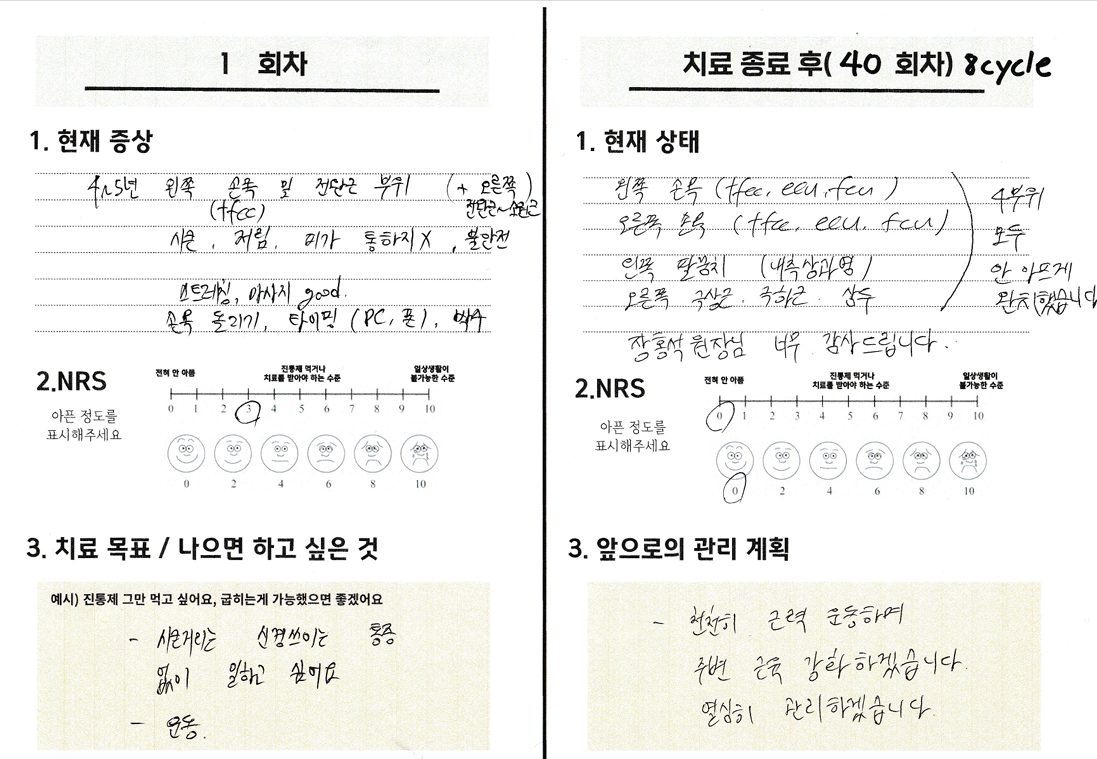 1 회차
1. 현재 증상
4~5년 왼쪽 손목 및 전완근 부위 (+ 오른쪽)
(tfcc) 전완근~소원근
시큰, 저림, 피가 통하지X, 불안전
스트레칭, 마사지 good.
손목 돌리기, 타이핑 (PC, 폰), 박수
2.NRS
아픈 정도를
표시해주세요
전혀 안 아픔
진통제 먹거나
치료를 받아야 하는 수준
일상생활이
불가능한 수준
0 1 2 3 4 5 6 7 8 9 10
0 2 4 6 8 10
3. 치료 목표 / 나으면 하고 싶은 것
예시) 진통제 그만 먹고 싶어요, 굽히는게 가능했으면 좋겠어요
- 시큰거리는 신경쓰이는 통증
없이 일하고 싶어요
- 운동.
치료 종료 후( 40 회차) 8cycle
1. 현재 상태
왼쪽 손목 (tfcc, ecu, fcu)
오른쪽 손목 (tfcc, ecu, fcu)
왼쪽 팔꿈치 (내측상과염)
오른쪽 극상근. 극하근. 삼두
4부위
모두
안 아프게
완치했습니다
장홍석 원장님 너무 감사드립니다.
2.NRS
아픈 정도를
표시해주세요
전혀 안 아픔
진통제 먹거나
치료를 받아야 하는 수준
일상생활이
불가능한 수준
0 1 2 3 4 5 6 7 8 9 10
0 2 4 6 8 10
3. 앞으로의 관리 계획
- 천천히 근력 운동하며
주변 근육 강화하겠습니다.
열심히 관리하겠습니다.